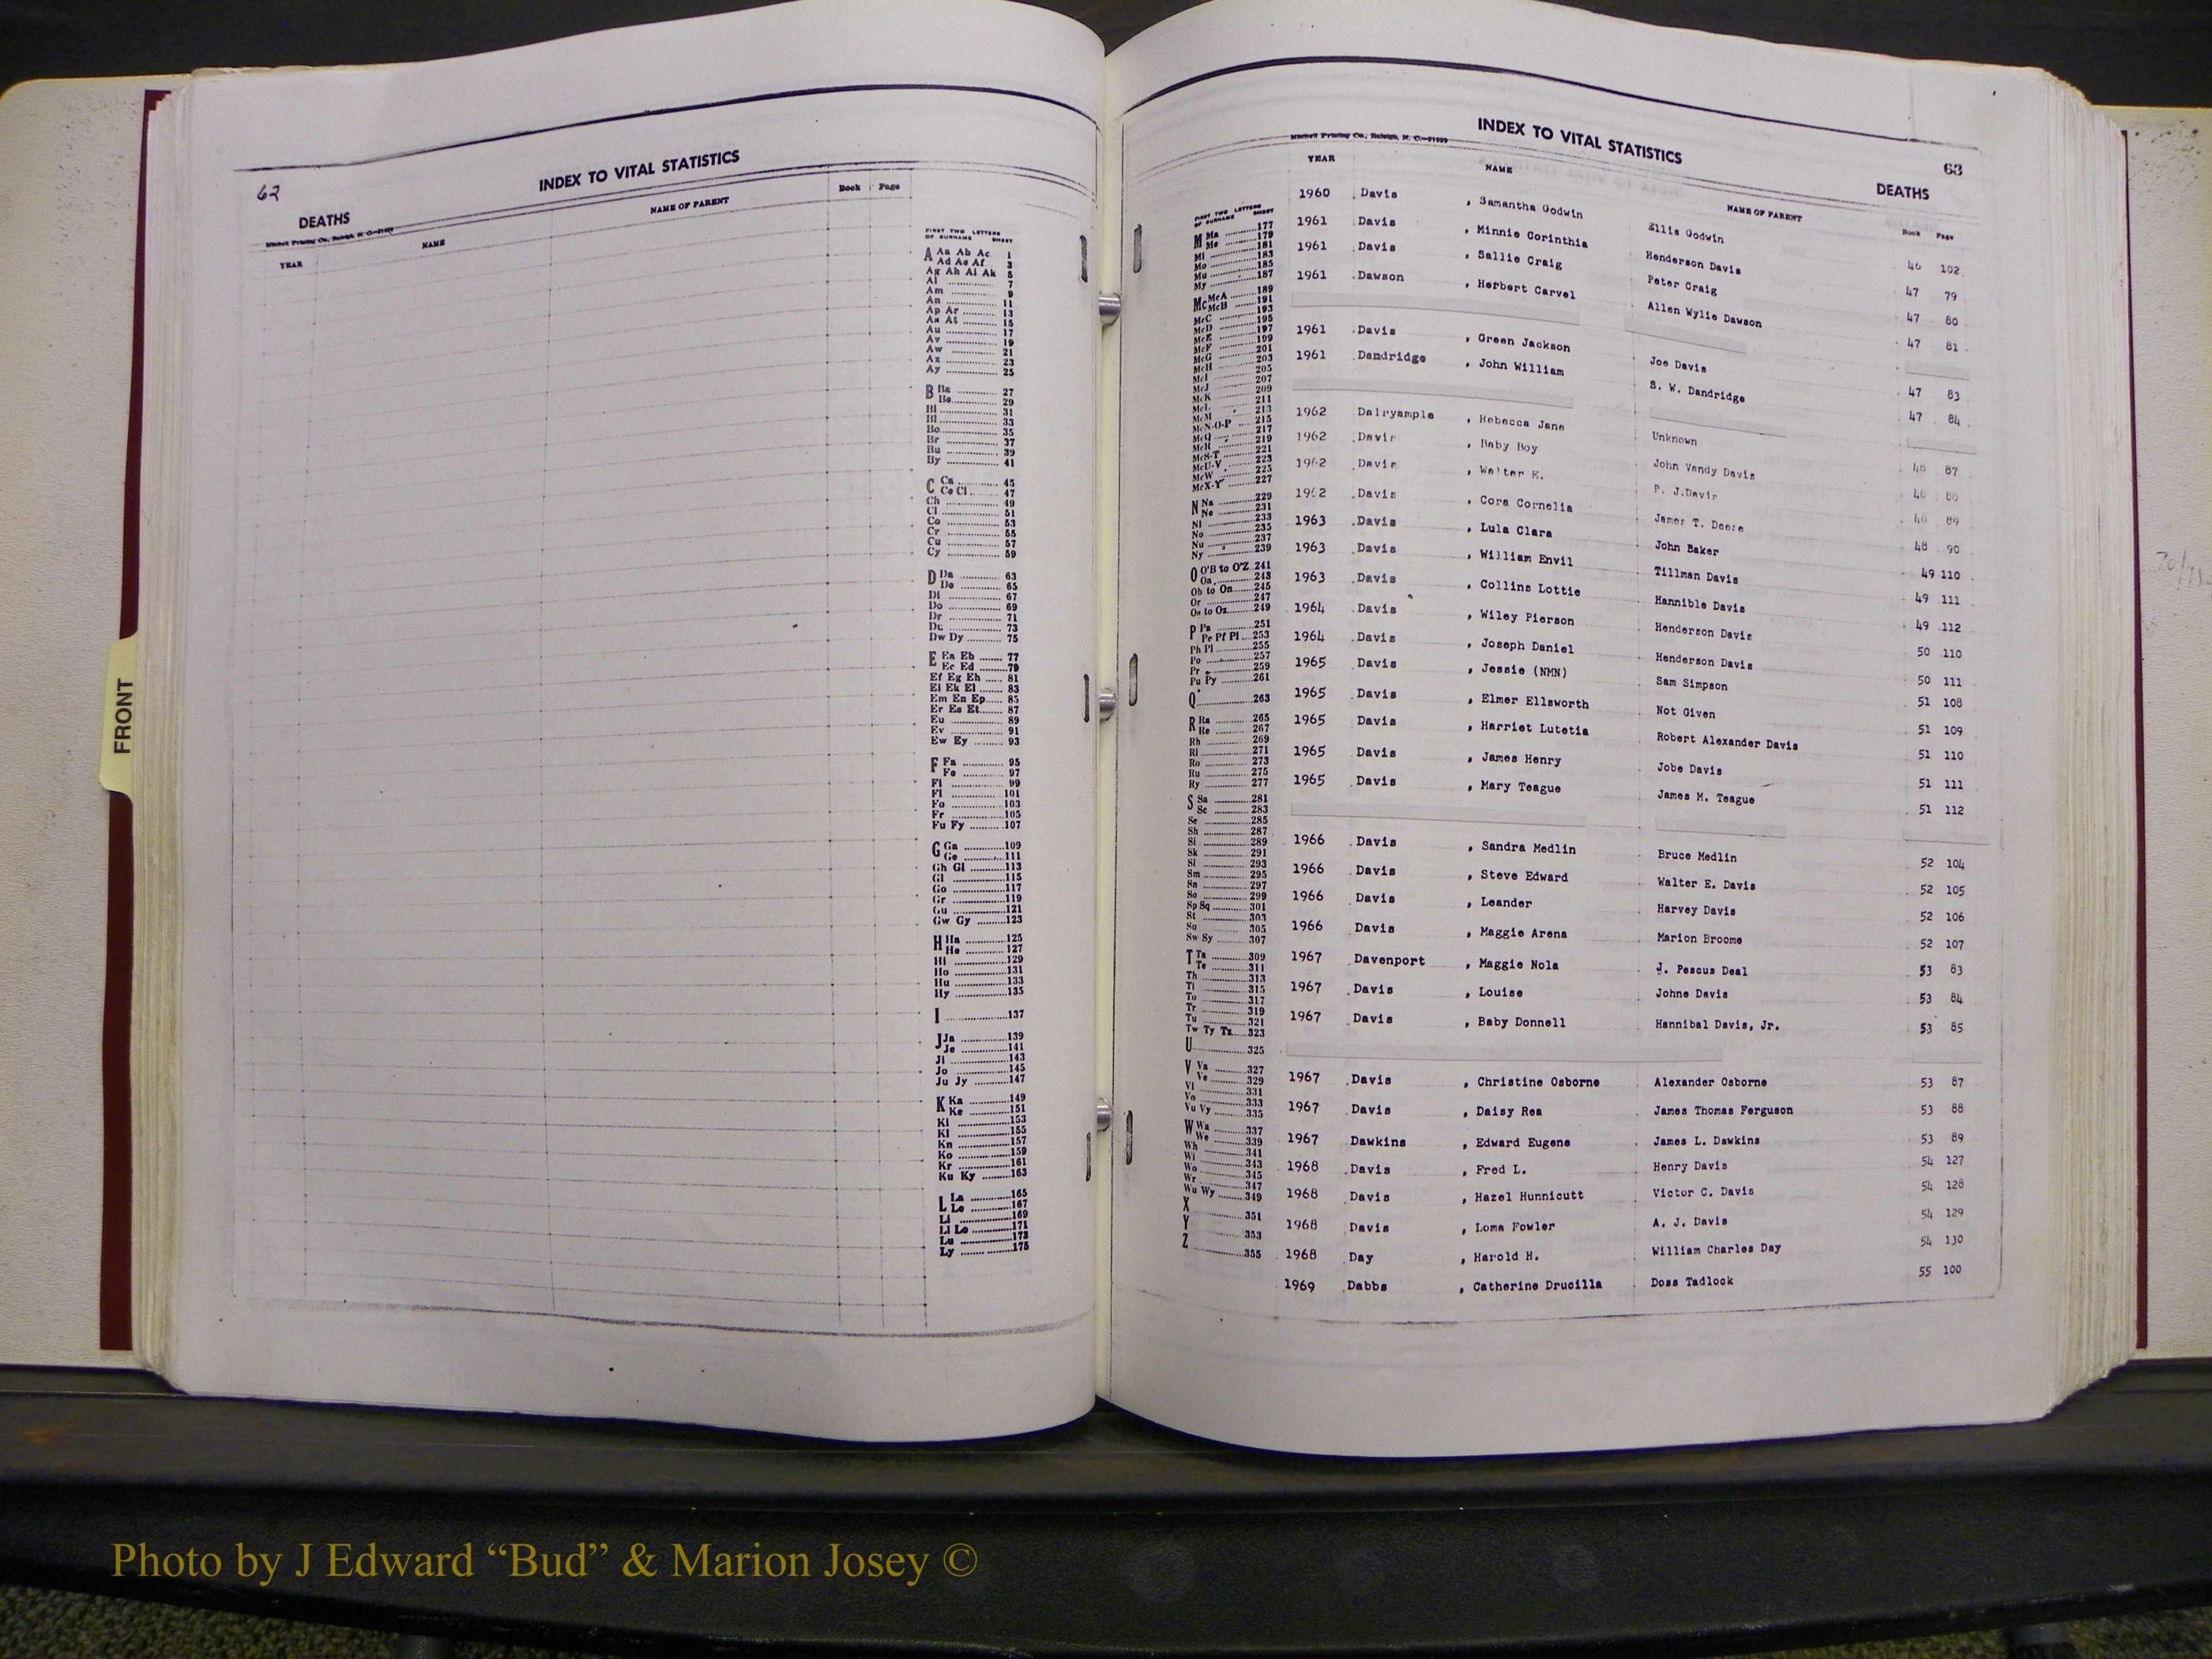 62
INDEX TO VITAL STATISTICS
DEATHS
YEAR NAME NAME OF PARENT Book Page
FIRST TWO LETTERS OF SURNAME SHEET
A Aa Ab Ac 1
Ad Ae Af 3
Ag Ah Ai Ak 5
Al 7
Am 9
An 11
Ap Ar 13
As At 15
Au 17
Av 19
Aw 21
Ax 23
Ay 25
B Ba 27
Be 29
Bi 31
Bl 33
Bo 35
Br 37
Bu 39
By 41
C Ca 45
Ce Ci 47
Ch 49
Cl 51
Co 53
Cr 55
Cu 57
Cy 59
D Da 63
De 65
Di 67
Do 69
Dr 71
Du 73
Dw Dy 75
E Ea Eb 77
Ec Ed 79
Ef Eg Eh 81
Ei Ek El 83
Em En Ep 85
Er Es Et 87
Eu 89
Ev 91
Ew Ey 93
F Fa 95
Fe 97
Fi 99
Fl 101
Fo 103
Fr 105
Fu Fy 107
G Ga 109
Ge 111
Gh Gi 113
Gl 115
Go 117
Gr 119
Gu 121
Gw Gy 123
H Ha 125
He 127
Hi 129
Ho 131
Hu 133
Hy 135
I 137
J Ja 139
Je 141
Ji 143
Jo 145
Ju Jy 147
K Ka 149
Ke 151
Ki 153
Kl 155
Kn 157
Ko 159
Kr 161
Ku Ky 163
L La 165
Le 167
Li 169
Ll Lo 171
Lu 173
Ly 175
FRONT
INDEX TO VITAL STATISTICS
Mitchell Printing Co., Raleigh, N. C.
63
DEATHS
YEAR NAME NAME OF PARENT Book Page
FIRST TWO LETTERS OF SURNAME SHEET
M Ma 177
Me 179
Mi 181
Mo 183
Mu 185
My 187
Mc McA 189
McB 191
McC 193
McD 195
McE 197
McF 199
McG 201
McH 203
McI 205
McJ 207
McK 209
McL 211
McM 213
McN-O-P 215
McQ 217
McR 219
McS-T 221
McU-V 223
McW 225
McX-Y 227
N Na 229
Ne 231
Ni 233
No 235
Nu 237
Ny 239
O O'B to O'Z 241
Oa 243
Ob to On 245
Or 247
Os to Oz 249
P Pa 251
Pe Pf Pi 253
Ph Pl 255
Po 257
Pr 259
Pu Py 261
Q 263
R Ra 265
Re 267
Rh 269
Ri 271
Ro 273
Ru 275
Ry 277
S Sa 281
Sc 283
Se 285
Sh 287
Si 289
Sk 291
Sl 293
Sm 295
Sn 297
So 299
Sp Sq 301
St 303
Su 305
Sw Sy 307
T Ta 309
Te 311
Th 313
Ti 315
To 317
Tr 319
Tu 321
Tw Ty Tz 323
U 325
V Va 327
Ve 329
Vi 331
Vo 333
Vu Vy 335
W Wa 337
We 339
Wh 341
Wi 343
Wo 345
Wr 347
Wu Wy 349
X 351
Y 353
Z 355
1960 Davis , Samantha Godwin Ellis Godwin 46 102
1961 Davis , Minnie Corinthia Henderson Davis 47 79
1961 Davis , Sallie Craig Peter Craig 47 80
1961 Dawson , Herbert Carvel Allen Wylie Dawson 47 81
1961 Davis , Green Jackson Joe Davis 47 83
1961 Dandridge , John William S. W. Dandridge 47 84
1962 Dalryample , Rebecca Jane Unknown 48 87
1962 Davis , Baby Boy John Vandy Davis 48 88
1962 Davis , Walter E. P. J. Davis 48 89
1962 Davis , Cora Cornelia James T. Deese 48 90
1963 Davis , Lula Clara John Baker 49 110
1963 Davis , William Envil Tillman Davis 49 111
1963 Davis , Collins Lottie Hannible Davis 49 112
1964 Davis , Wiley Pierson Henderson Davis 50 110
1964 Davis , Joseph Daniel Henderson Davis 50 111
1965 Davis , Jessie (NMN) Sam Simpson 51 108
1965 Davis , Elmer Ellsworth Not Given 51 109
1965 Davis , Harriet Lutetia Robert Alexander Davis 51 110
1965 Davis , James Henry Jobe Davis 51 111
1965 Davis , Mary Teague James M. Teague 51 112
1966 Davis , Sandra Medlin Bruce Medlin 52 104
1966 Davis , Steve Edward Walter E. Davis 52 105
1966 Davis , Leander Harvey Davis 52 106
1966 Davis , Maggie Arena Marion Broome 52 107
1967 Davenport , Maggie Nola J. Pescus Deal 53 83
1967 Davis , Louise Johne Davis 53 84
1967 Davis , Baby Donnell Hannibal Davis, Jr. 53 85
1967 Davis , Christine Osborne Alexander Osborne 53 87
1967 Davis , Daisy Rea James Thomas Ferguson 53 88
1967 Dawkins , Edward Eugene James L. Dawkins 53 89
1968 Davis , Fred L. Henry Davis 54 127
1968 Davis , Hazel Hunnicutt Victor C. Davis 54 128
1968 Davis , Loma Fowler A. J. Davis 54 129
1968 Day , Harold H. William Charles Day 54 130
1969 Dabbs , Catherine Drucilla Doss Tadlock 55 100
Photo by J Edward “Bud” & Marion Josey ©